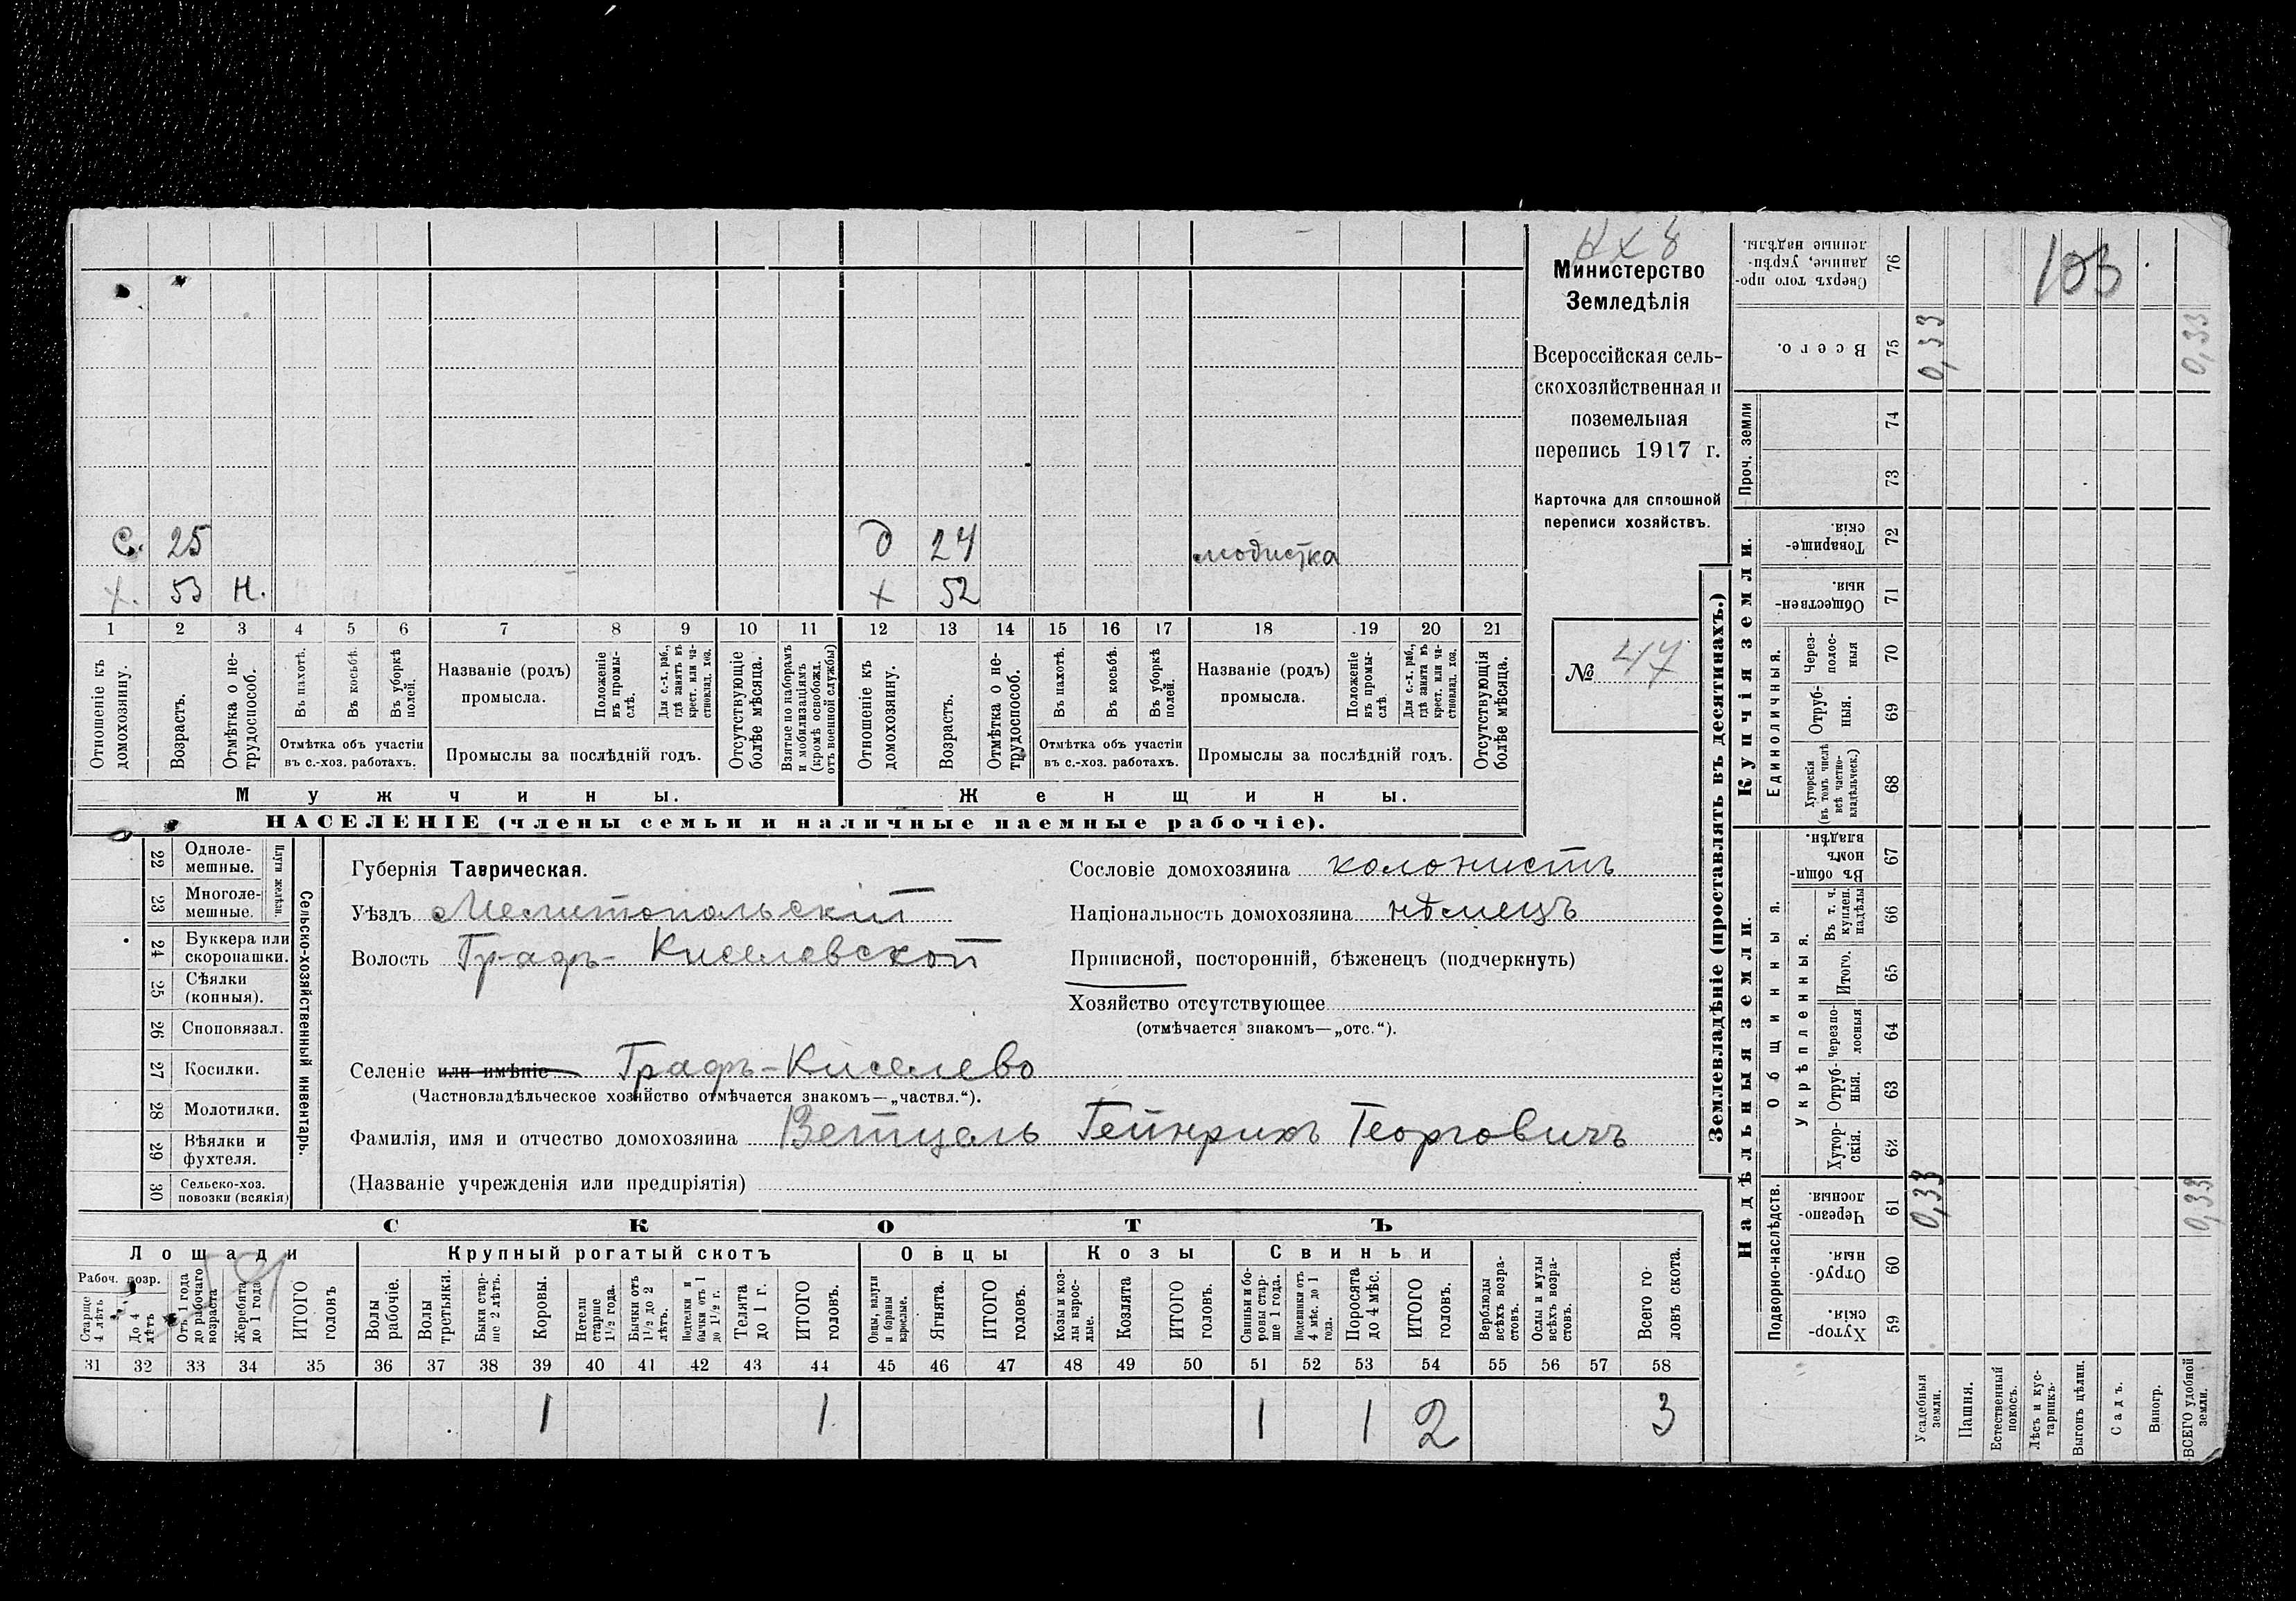 Министерство
Земледѣлія
Всероссійская сель-
скохозяйственная и
поземельная
перепись 1917 г.
Карточка для сплошной
переписи хозяйствъ.
№ 47
С. 25
Х. 53 Н.
д 24 модистка
х 52
1 2 3 4 5 6 7 8 9 10 11 12 13 14 15 16 17 18 19 20 21
Отношеніе къ домохозяину.
Возрастъ.
Отмѣтка о не-трудоспособ.
Въ пахотѣ.
Въ косьбѣ.
Въ уборкѣ полей.
Отмѣтка объ участіи
въ с.-хоз. работахъ.
Названіе (родъ)
промысла.
Положеніе въ промы-слѣ.
Для с.-х. раб., гдѣ занятъ въ крест. или ча-стновлад. хоз.
Промыслы за послѣдній годъ.
Отсутствующіе болѣе мѣсяца.
Взятые по наборамъ и мобилизаціямъ (кромѣ освобожд. отъ военной службы)
Отношеніе къ домохозяину.
Возрастъ.
Отмѣтка о не-трудоспособ.
Въ пахотѣ.
Въ косьбѣ.
Въ уборкѣ полей.
Отмѣтка объ участіи
въ с.-хоз. работахъ.
Названіе (родъ)
промысла.
Положеніе въ промы-слѣ.
Для с.-х. раб., гдѣ занята въ крест. или ча-стновлад. хоз.
Промыслы за послѣдній годъ.
Отсутствующія болѣе мѣсяца.
Мужчины.
Женщины.
НАСЕЛЕНІЕ (члены семьи и наличные наемные рабочіе).
22 Одноле-мешные.
23 Многоле-мешные.
Плуги желѣзн.
24 Буккера или скоропашки.
25 Сѣялки (конныя).
26 Сноповязал.
27 Косилки.
28 Молотилки.
29 Вѣялки и фухтеля.
30 Сельско-хоз. повозки (всякія)
Сельско-хозяйственный инвентарь.
Губернія Таврическая.
Уѣздъ Мелитопольскій
Волость Графъ-Киселевской
Сословіе домохозяина колонистъ
Національность домохозяина нѣмецъ
Приписной, посторонній, бѣженецъ (подчеркнуть)
Хозяйство отсутствующее
(отмѣчается знакомъ—„отс.“).
Селеніе или имѣніе Графъ-Киселево
(Частновладѣльческое хозяйство отмѣчается знакомъ—„частвл.“).
Фамилія, имя и отчество домохозяина Ветцель Гейнрихъ Георговичъ
(Названіе учрежденія или предпріятія)
СКОТЪ
Лошади
Крупный рогатый скотъ
Овцы
Козы
Свиньи
Рабоч. возр.
Старше 4 лѣтъ
До 4 лѣтъ
Отъ 1 года до рабочаго возраста
Жеребята до 1 года
ИТОГО головъ
Волы рабочіе.
Волы третьяки.
Быки стар-ше 2 лѣтъ.
Коровы.
Нетели старше 1½ года.
Бычки отъ 1½ до 2 лѣтъ.
Подтелки и бычки отъ 1 до 1½ г.
Телята до 1 г.
ИТОГО головъ.
Овцы, валухи и бараны взрослые.
Ягнята.
ИТОГО головъ.
Козы и коз-лы взрос-лые.
Козлята
ИТОГО головъ.
Свиньи и бо-ровы стар-ше 1 года.
Подсвинки отъ 4 мѣс. до 1 года.
Поросята до 4 мѣс.
ИТОГО головъ.
Верблюды всѣхъ возра-стовъ.
Ослы и мулы всѣхъ возра-стовъ.
Всего го-ловъ скота.
31 32 33 34 35 36 37 38 39 40 41 42 43 44 45 46 47 48 49 50 51 52 53 54 55 56 57 58
1 1 1 1 2 3
Землевладѣніе (проставлять въ десятинахъ.)
Надѣльныя земли.
Купчія земли.
Проч. земли
Подворно-наслѣдств.
Общинныя.
Укрѣпленныя.
Единоличныя.
103
Сверхъ того про-данные, укрѣп-ленные надѣлы. 76
Всего. 75 0,33 0,33
74
73
Товарище-скія. 72
Обществен-ныя. 71
Через-полос-ныя 70
Отруб-ныя. 69
Хуторскія (въ томъ числѣ всѣ частно-владѣльческ.) 68
Въ общин-номъ владѣн. 67
Въ т. ч. куплен. надѣлы 66
Итого. 65
Черезпо-лосныя 64
Отруб-ныя. 63
Хутор-скія. 62
Черезпо-лосныя 61 0,33 0,33
Отруб-ныя 60
Хутор-скія 59
Усадебныя земли.
Пашня.
Естественный покосъ.
Лѣсъ и кус-тарникъ.
Выгонъ цѣлин.
Садъ.
Виногр.
ВСЕГО удобной земли.